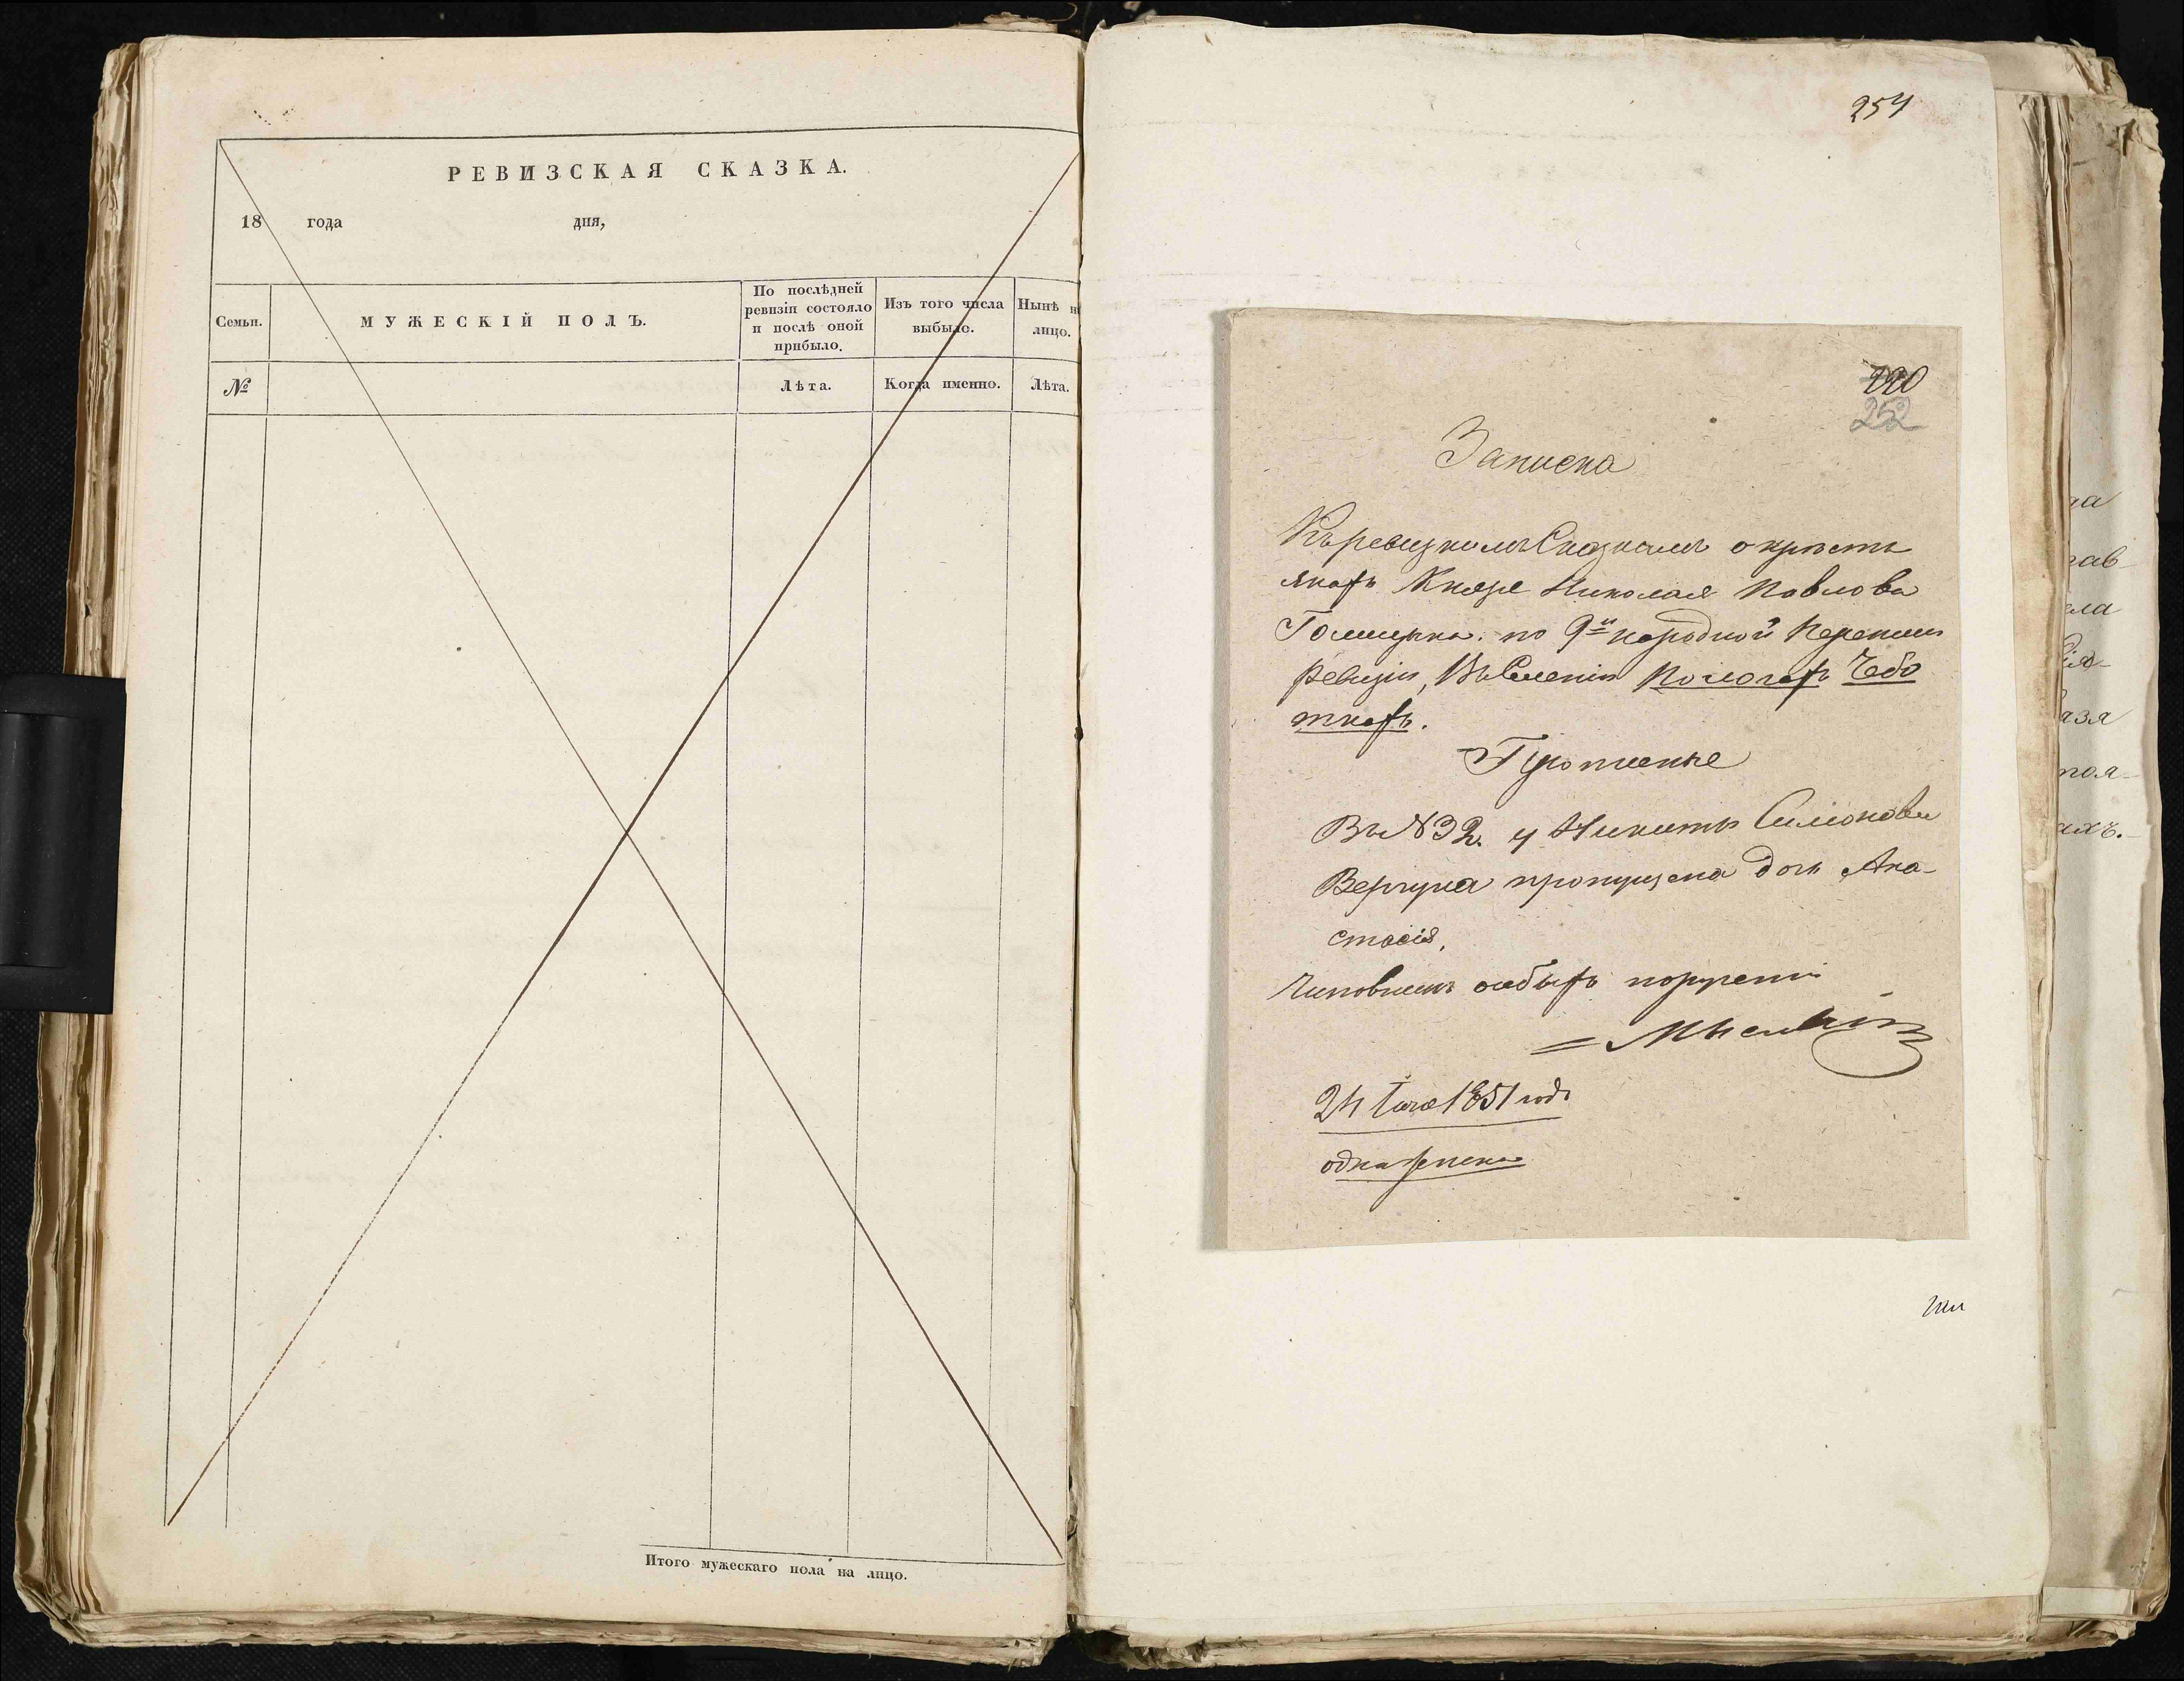 РЕВИЗСКАЯ СКАЗКА.
18 года дня,
Семьи.
МУЖЕСКІЙ ПОЛЪ.
По послѣдней
ревизіи состояло
и послѣ оной
прибыло.
Изъ того числа
выбыло.
Нынѣ н
лицо.
№
Лѣта.
Когда именно.
Лѣта.
Итого мужескаго пола на лицо.
254
252
Записка
Къ ревизкимъ Сказкамъ о крѣсть
янахъ Князя Николая Павлова
Голицына. по 9й народной Перепис
ревизіи, Въ Селенія Пологахъ Чебо
ткахъ.
Въ №32. у Никиты Симіонова
Вергуна пропущена дочь Ана-
стасія.
Чиновникъ особыхъ порученій
24 1851 годъ